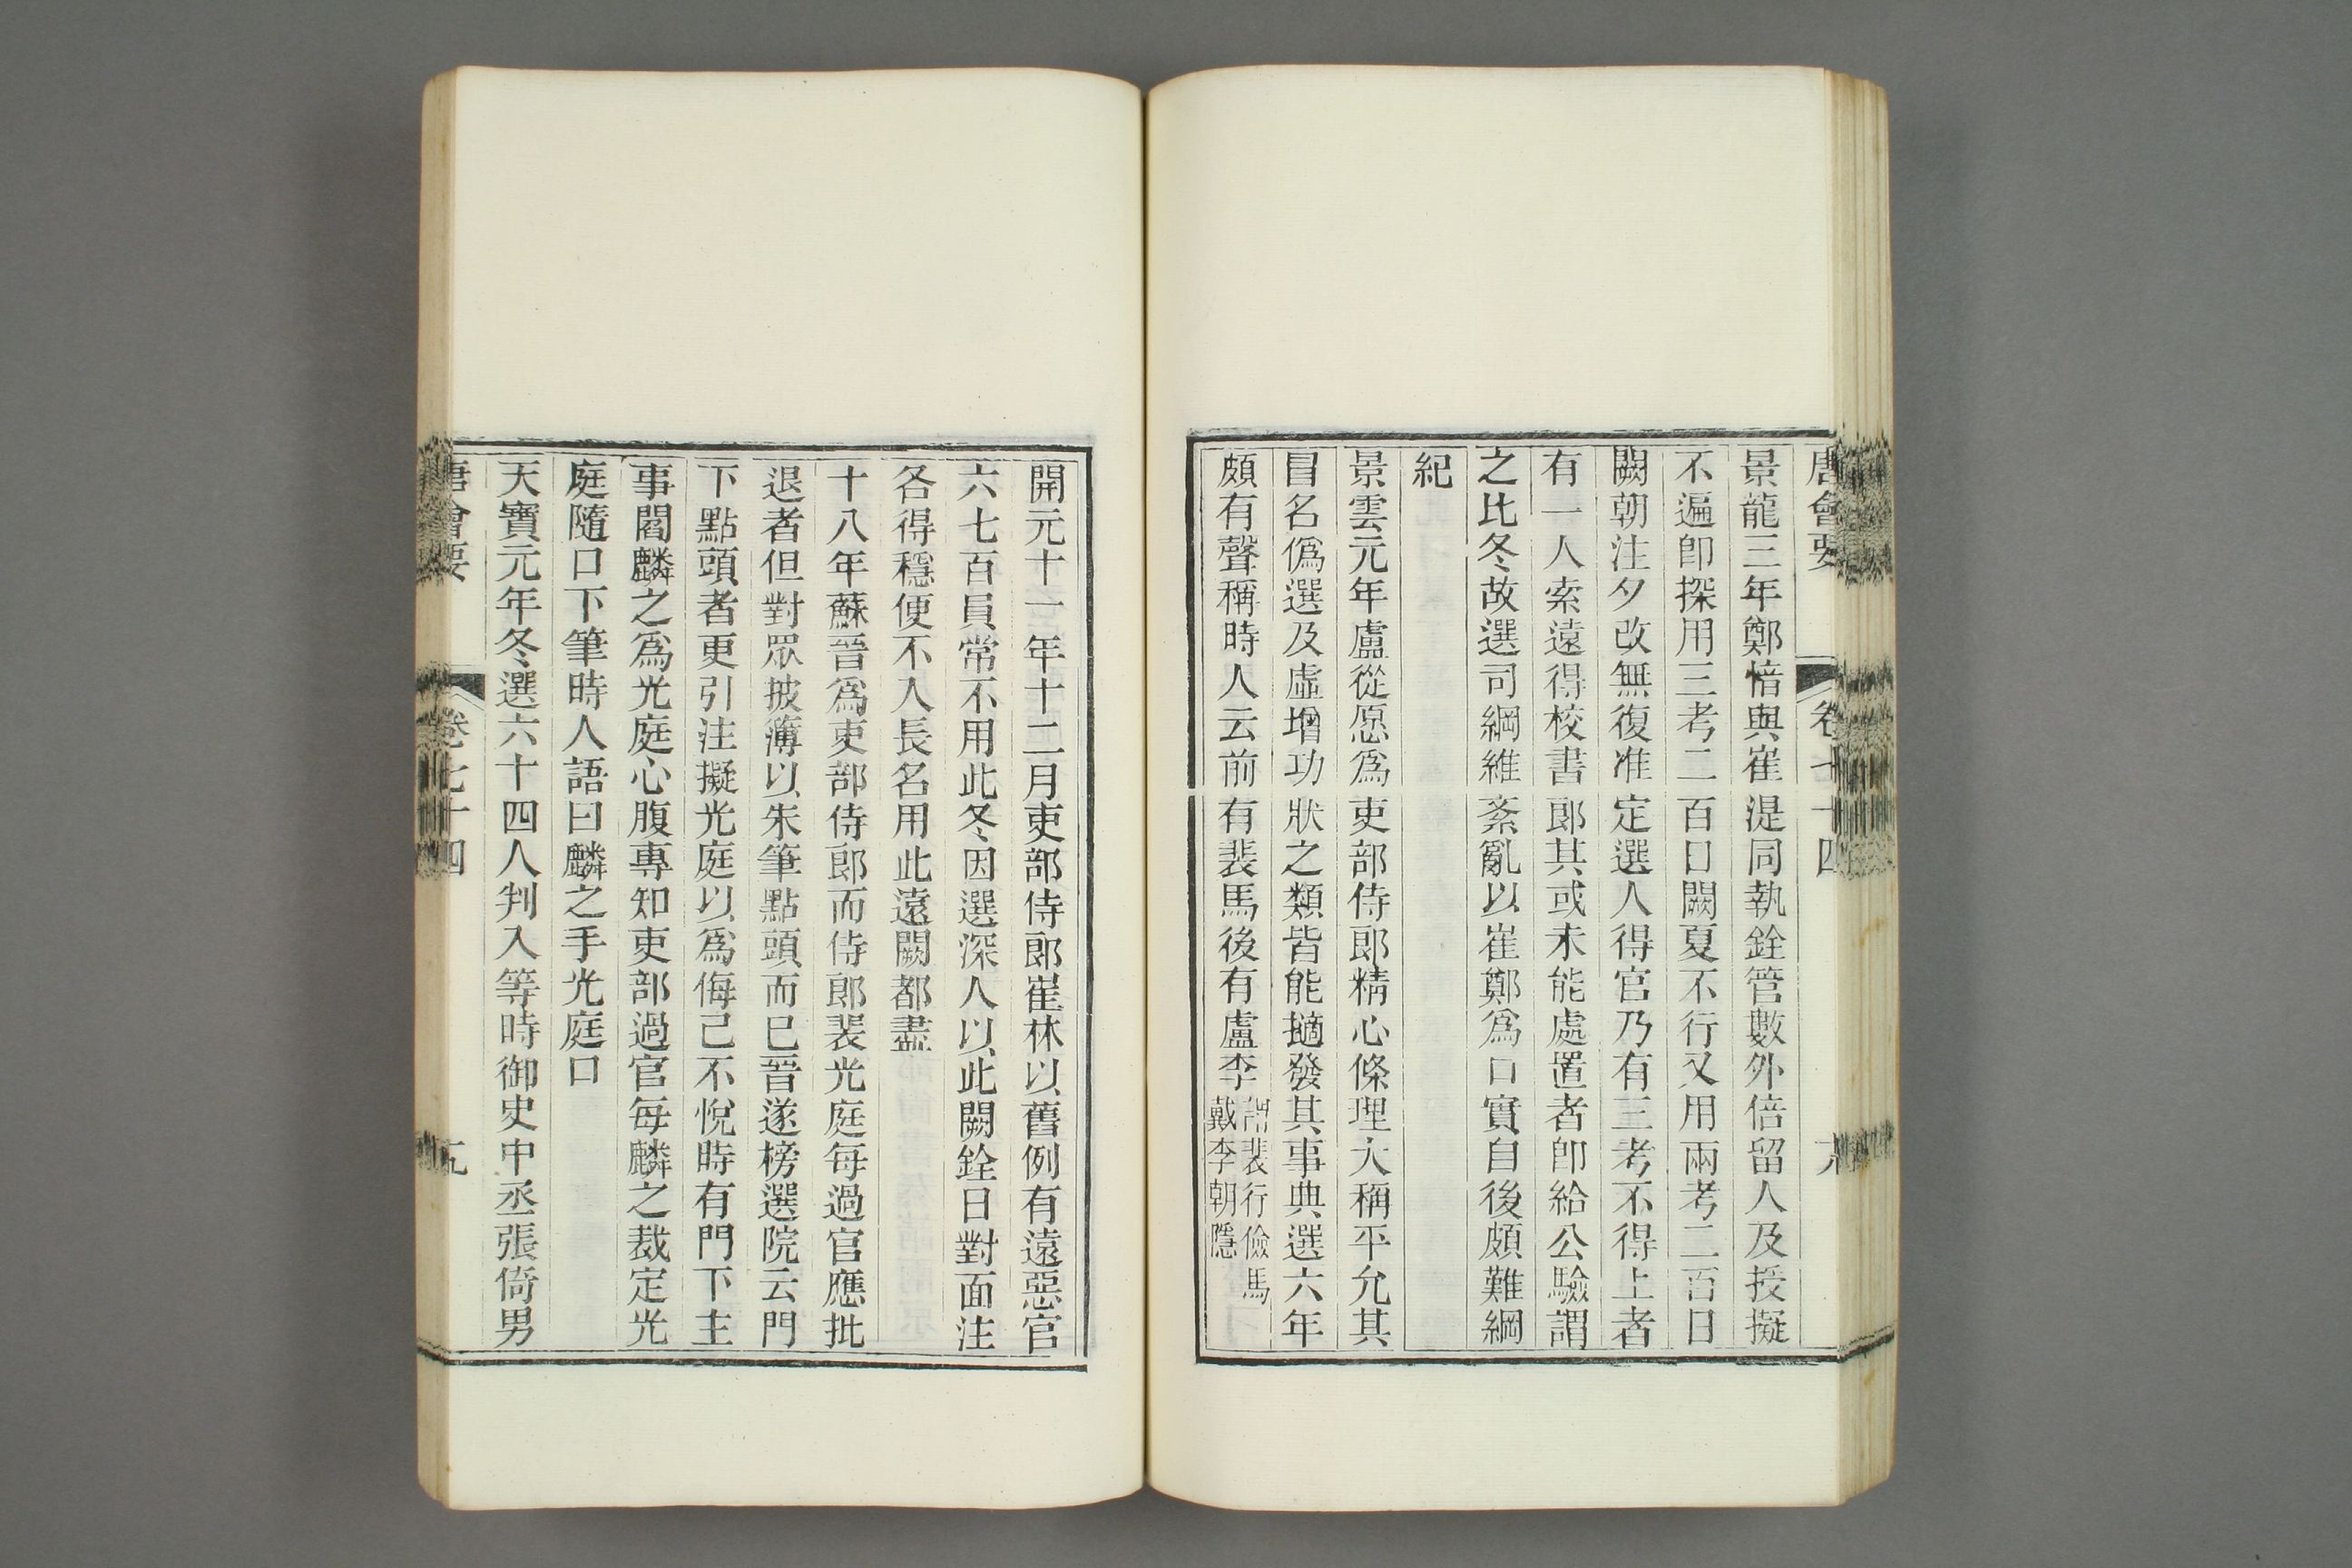 唐會要 卷七十四
景龍三年鄭愔與崔湜同執銓管數外倍留人及授擬
不遍卽探用三考二百日闕夏不行又用兩考二百日
闕朝注夕改無復准定選人得官乃有三考不得上者
有一人索遠得校書郞其或未能處置者卽給公驗謂
之比冬故選司綱維紊亂以崔鄭爲口實自後頗難綱
紀
景雲元年盧從愿爲吏部侍郞精心條理大稱平允其
冒名僞選及虛增功狀之類皆能擿發其事典選六年
頗有聲稱時人云前有裴馬後有盧李謂裴行儉馬戴李朝隱
開元十一年十二月吏部侍郞崔林以舊例有遠惡官
六七百員常不用此冬因選深人以此闕銓日對面注
各得穩便不入長名用此遠闕都盡
十八年蘇晉爲吏部侍郞而侍郞裴光庭每過官應批
退者但對眾披簿以朱筆點頭而巳晉遂榜選院云門
下點頭者更引注擬光庭以爲侮己不悅時有門下主
事閻麟之爲光庭心腹專知吏部過官每麟之裁定光
庭隨口下筆時人語曰麟之手光庭口
天寶元年冬選六十四人判入等時御史中丞張倚男
唐會要 卷七十四